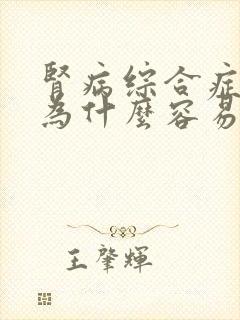 腎病綜合症
為什麼容易
王肇輝